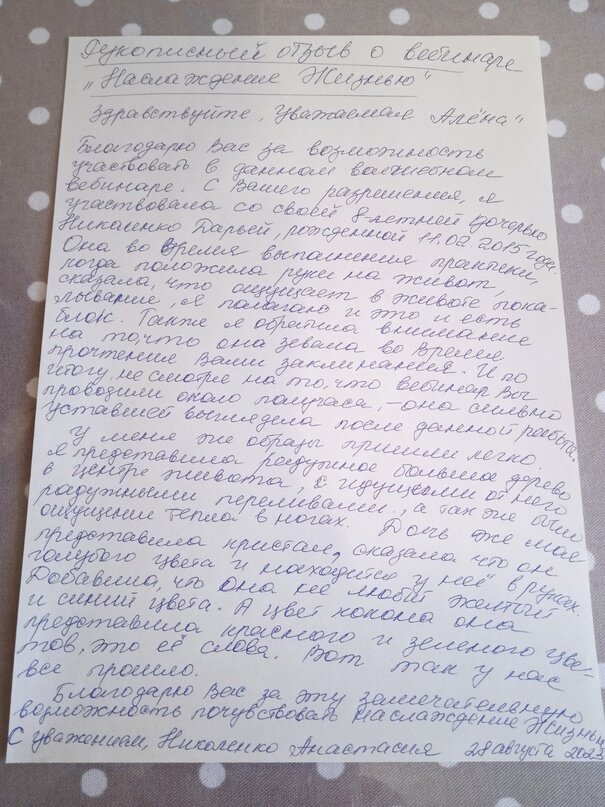 Рукописный отзыв о вебинаре
„Наслаждение Жизнью"
Здравствуйте, уважаемая Алёна"
Благодарю Вас за возможность
участвовать в данном волшебном
вебинаре. С Вашего разрешения, я
участвовала со своей 8-летней дочерью
Николенко Дарьей, рожденной 11.02.2015 года.
Она во время выполнения практики,
когда положила руки на живот,
сказала, что ощущает в животе пока-
лывание, я полагаю и это и есть
блок. Также я обратила внимание
на то, что она зевала во время
прочтения Вами заклинания. И по
итогу, не смотря на то, что вебинар Вы
проводили около получаса, - она сильно
уставшей выглядела после данной работы.
У меня же образы пришли легко.
Я представила радужное большое дерево
в центре живота, с идущими от него
радужными переливами, а так же было
ощущение тепла в ногах. Дочь же моя
представила кристалл, сказала что он
голубого цвета и находится у неё в руках.
Добавила, что она не любит желтый
и синий цвета. А цвет кокона она
представила красного и зеленого цве-
тов, это её слова. Вот так у нас
все прошло.
Благодарю Вас за эту замечательную
возможность почувствовать Наслаждение Жизнью
С уважением, Николенко Анастасия 28 августа 2023